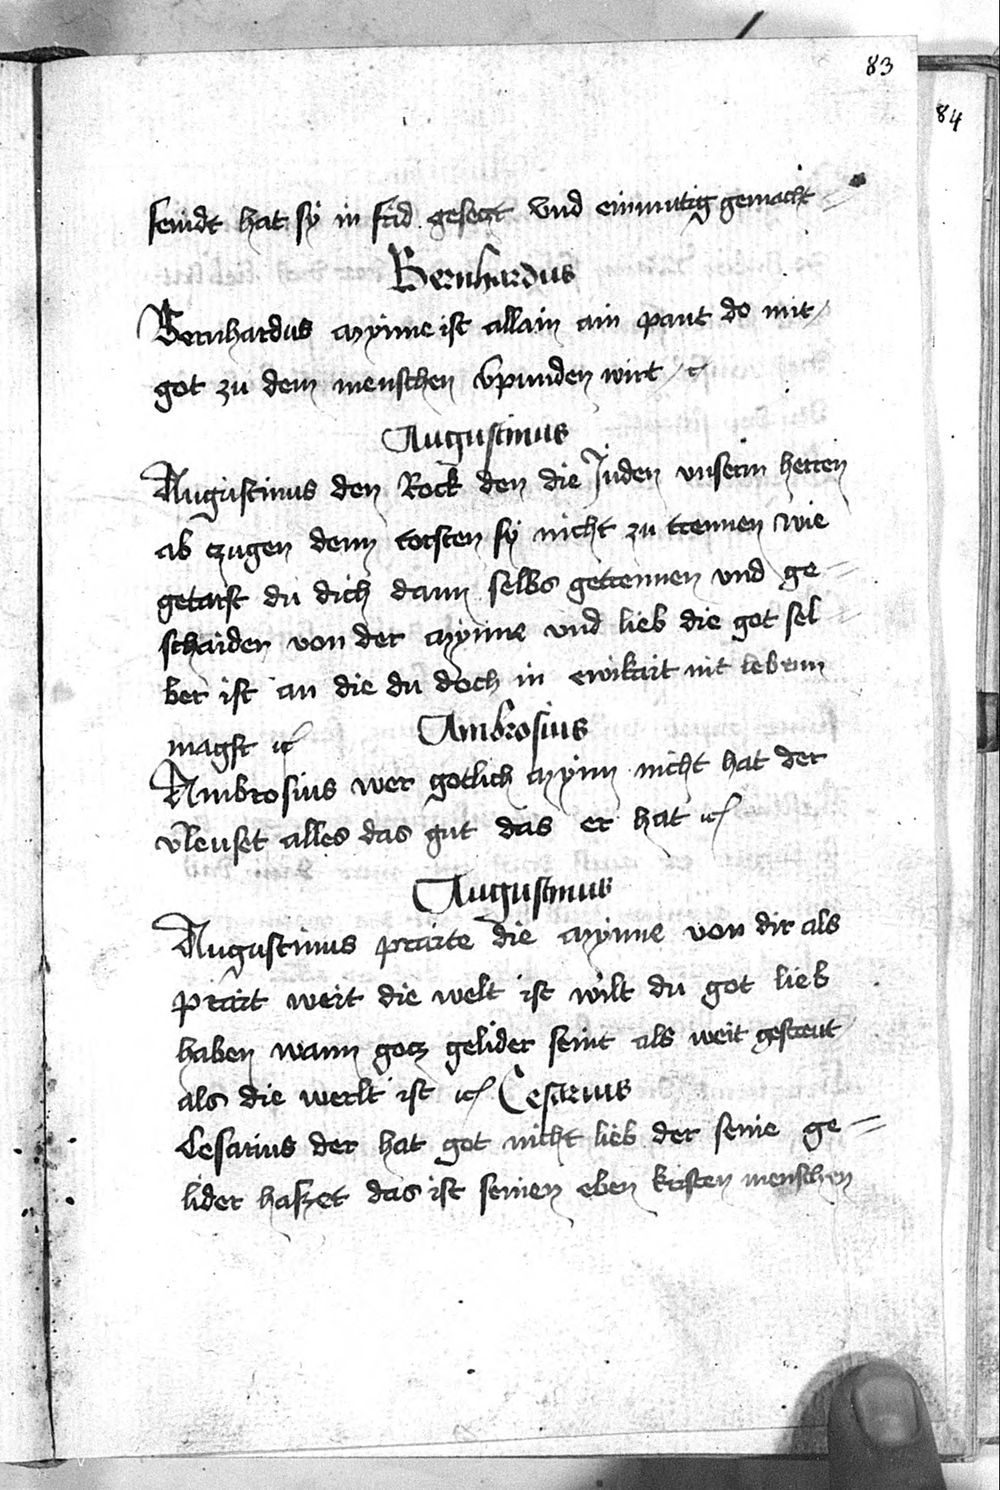 83
84
feindt hat sy in frid gesetzt vnd einmutig gemacht
Bernhardus
Bernhardus mynne ist allain ain pant do mit
got zu dem menschen vpunden wirt ꝛc
Augustinus
Augustinus den Rock den die Juden vnserm herren
ab zugen denn torsten sy nicht zu trennen wie
getarst du dich dann selbs getrennen vnd ge=
schaiden von der mynne vnd lieb die got sel=
ber ist an die du doch in ewikait nit lebenn
magst ꝛc
Ambrosius
Ambrosius wer gotlich mynn nicht hat der
vleuset alles das gut das er hat ꝛc
Augustinus
Augustinus praite die mynne von dir als
prait weit die welt ist wilt du got lieb
haben wann gotz gelider seint als weit gestreut
als die werlt ist ꝛc Cesarius
Cesarius der hat got nicht lieb der seine ge=
lider hasset das ist seinen eben kristen menschen